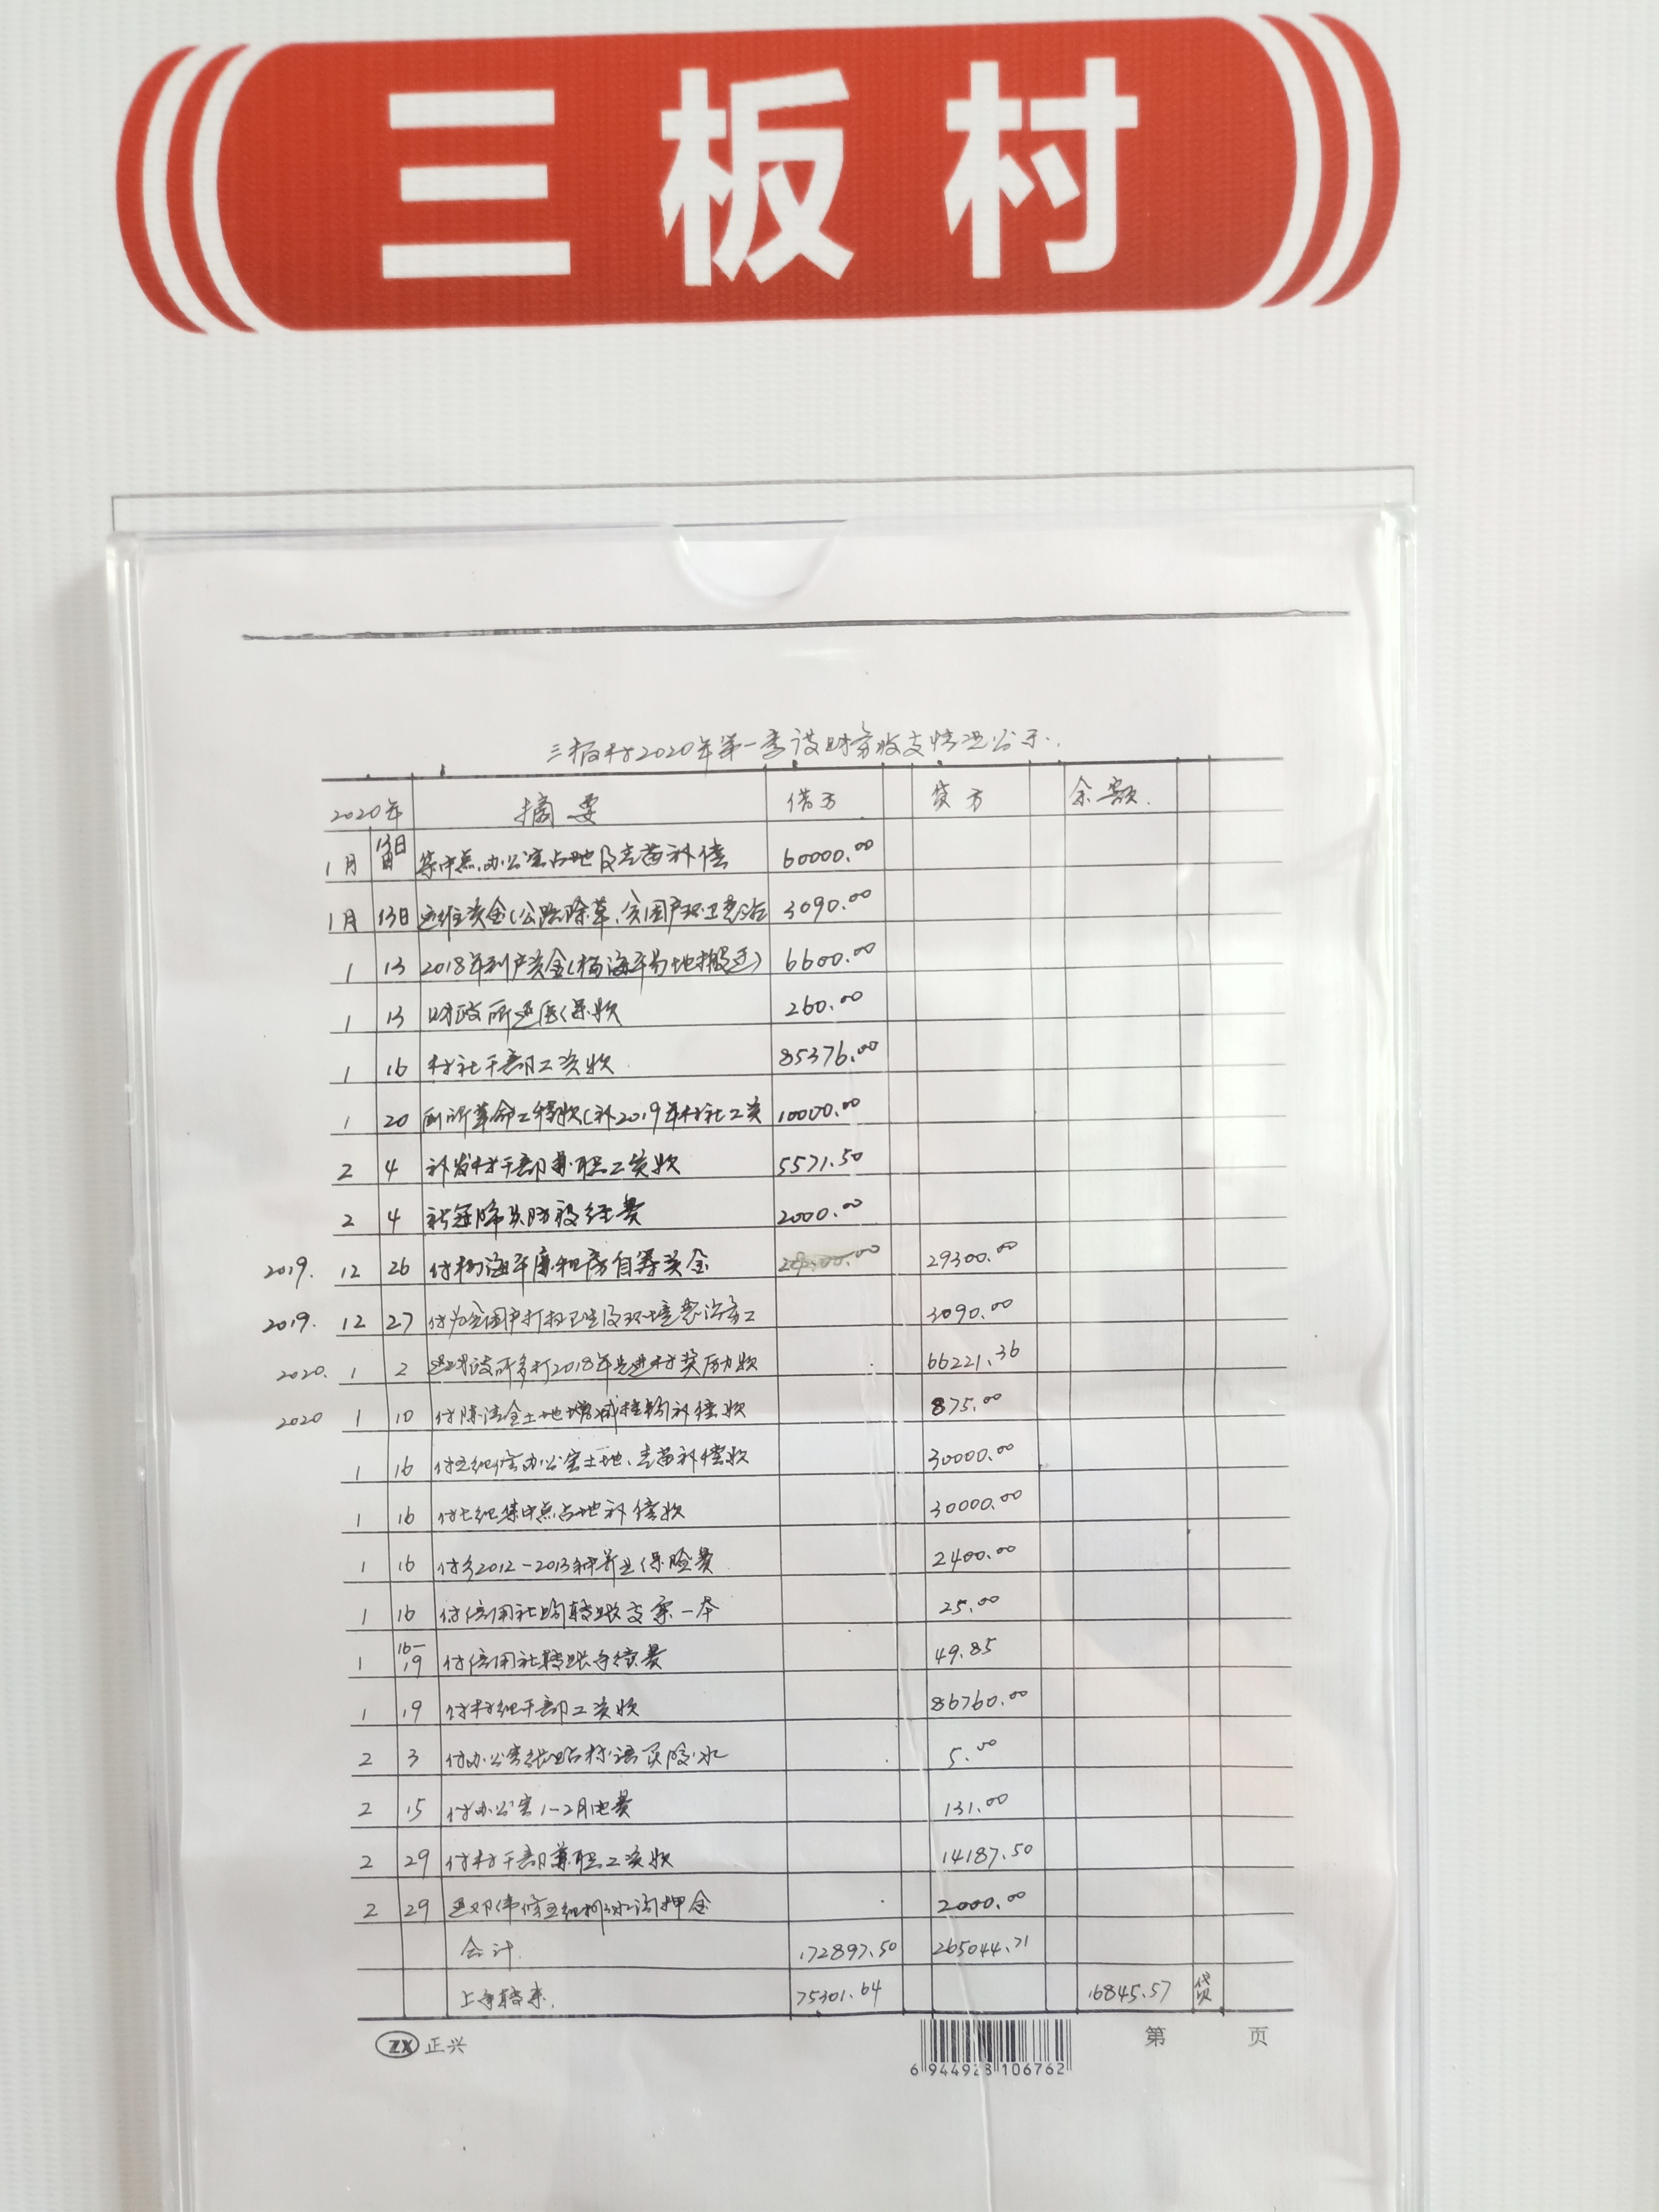 三板村
三板村2020年第一季度财务收支情况公示.
2020年 摘要 借方 贷方 余额.
1月 13日 集中点,办公室占地及青苗补偿 60000.00
1月 13日 运维资金(公路除草、贫困户环卫整治 3090.00
1 13 2018年到户资金(杨海平易地搬迁) 6600.00
1 13 财政所退医保款 260.00
1 16 村社干部工资款 85376.00
1 20 厕所革命工程款(补2019年村社工资 10000.00
2 4 补发村干部兼职工资款 5571.50
2 4 新冠肺炎防疫经费 2000.00
2019. 12 26 付杨海平廉租房自筹资金 29300.00
2019. 12 27 付为贫困户打扫卫生及环境整治务工 3090.00
2020. 1 2 退财政所多打2018年先进村奖励款 66221.36
2020 1 10 付陈清全土地增减挂钩补偿款 875.00
1 16 付五组占办公室土地、青苗补偿款 30000.00
1 16 付七组集中点占地补偿款 30000.00
1 16 付乡2012-2013种养业保险费 2400.00
1 16 付信用社购转账支票一本 25.00
1 16-19 付信用社转账手续费 49.85
1 19 付村组干部工资款 86760.00
2 3 付办公室张贴标语买胶水 5.00
2 15 付办公室1-2月电费 131.00
2 29 付村干部兼职工资款 14187.50
2 29 退邓伟修五组排水沟押金 2000.00
合计. 172897.50 265044.71
上季转来. 75301.64 16845.57 贷
ZX 正兴 第 页
6 944928 106762